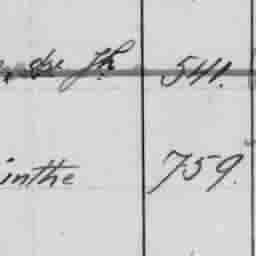 de Jh 541.
inthe 759.